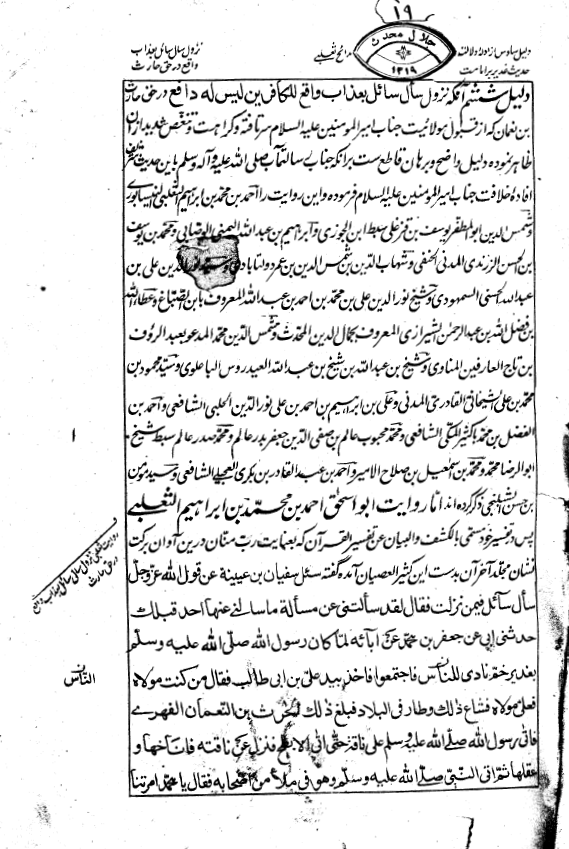 ١٩
دلیل سادس از ادلهٔ دلالت
حدیث غدیر بر امامت
مدائح ثعلبی
جلال محدث
١٣١٩
نزول سأل سائل بعذاب
واقع در حق حارث
دلیل ششم آنکه نزول سأل سائل بعذاب واقع للکافرین لیس له دافع در حق حارث
بن نعمان که از قبول مولائیت جناب امیر المومنین علیه السلام سر تافته و کراهت و تنغص شدید ازان
ظاهر نموده دلیل واضح و برهان قاطع ست برانکه جناب رسالتمآب صلی الله علیه و آله وسلم باین حدیث شریف
افادهٔ خلافت جناب امیر المومنین علیه السلام فرموده و این روایت را احمد بن محمد بن ابراهیم الثعلبی النیسابوری
و شمس الدین ابو المظفر یوسف بن قزعلی سبط ابن الجوزی و ابراهیم بن عبد الله الیمنی الوصابی و محمد بن یوسف
بن الحسن الزرندی المدنی الحنفی و شهاب الدین بن شمس الدین بن عمر دولتابادی و سید نور الدین علی بن
عبد الله الحسنی السمهودی و شیخ نور الدین علی بن محمد بن احمد بن عبد الله المعروف بابن الصباغ و عطاء الله
بن فضل الله بن عبد الرحمن الشیرازی المعروف بجمال الدین المحدث و شمس الدین محمد المدعو بعبد الرؤف
بن تاج العارفین المناوی و شیخ بن عبد الله بن شیخ بن عبد الله العیدروس الباعلوی و سید محمود بن
محمد بن علی الشیخانی القادری المدنی و علی بن ابراهیم بن احمد بن علی نور الدین الحلبی الشافعی و احمد بن
الفضل بن محمد باکثیر المکی الشافعی و محمد محبوب عالم بن صفی الدین جعفر بدر عالم و محمد صدر عالم سبط شیخ
ابو الرضا محمد و محمد بن اسمعیل بن صلاح الامیر و احمد بن عبد القادر بن بکری العجیلی الشافعی و سید مؤمن
بن حسن الشبلنجی ذکر کرده اند اما روایت ابو اسحق احمد بن محمد بن ابراهیم الثعلبی
پس در تفسیر خود مسمی بالکشف والبیان عن تفسیر القرآن که بعنایت رب منان درین آوان برکت
نشان مجلد آخر آن بدست این کثیر العصیان آمده گفته سئل سفیان بن عیینة عن قول الله عز وجل
سأل سائل فیمن نزلت فقال لقد سألتنی عن مسألة ما سألنی عنها احد قبلک
حدثنی ابی عن جعفر بن محمد عن آبائه لما کان رسول الله صلی الله علیه وسلم
بغدیر خم نادی للناس فاجتمعوا فاخذ بید علی بن ابی طالب فقال من کنت مولاه
فعلی مولاه فشاع ذلک وطار فی البلاد فبلغ ذلک الحرث بن النعمان الفهری
فاتی رسول الله صلی الله علیه وسلم علی ناقته حتی اتی الابطح فنزل عن ناقته فاناخها و
عقلها ثم اتی النبی صلی الله علیه وسلم وهو فی ملأ من اصحابه فقال یا محمد امرتنا
١
روایت ثعلبی نزول سأل سائل بعذاب واقع
در حق حارث
الناس